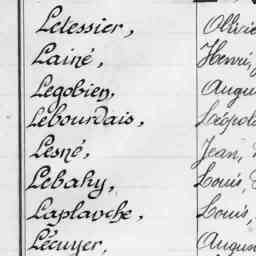 Letessier, Olivie
Lainé, Henri,
Legobien, Augu
Lebourdais, Léopol
Lesné, Jean,
Lebahy, Louis,
Laplanche, Louis,
Lécuyer, Augus